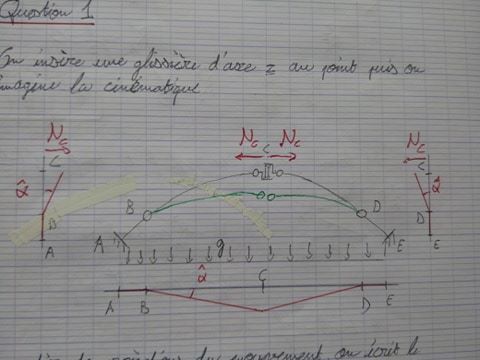 Question 1
On insère une glissière d'axe z au point puis on
imagine la cinématique
Nc Nc Nc Nc
C C C
α̂ α̂
B B D D
A A g E E
α̂ C
A B D E
du mouvement, on écrit le